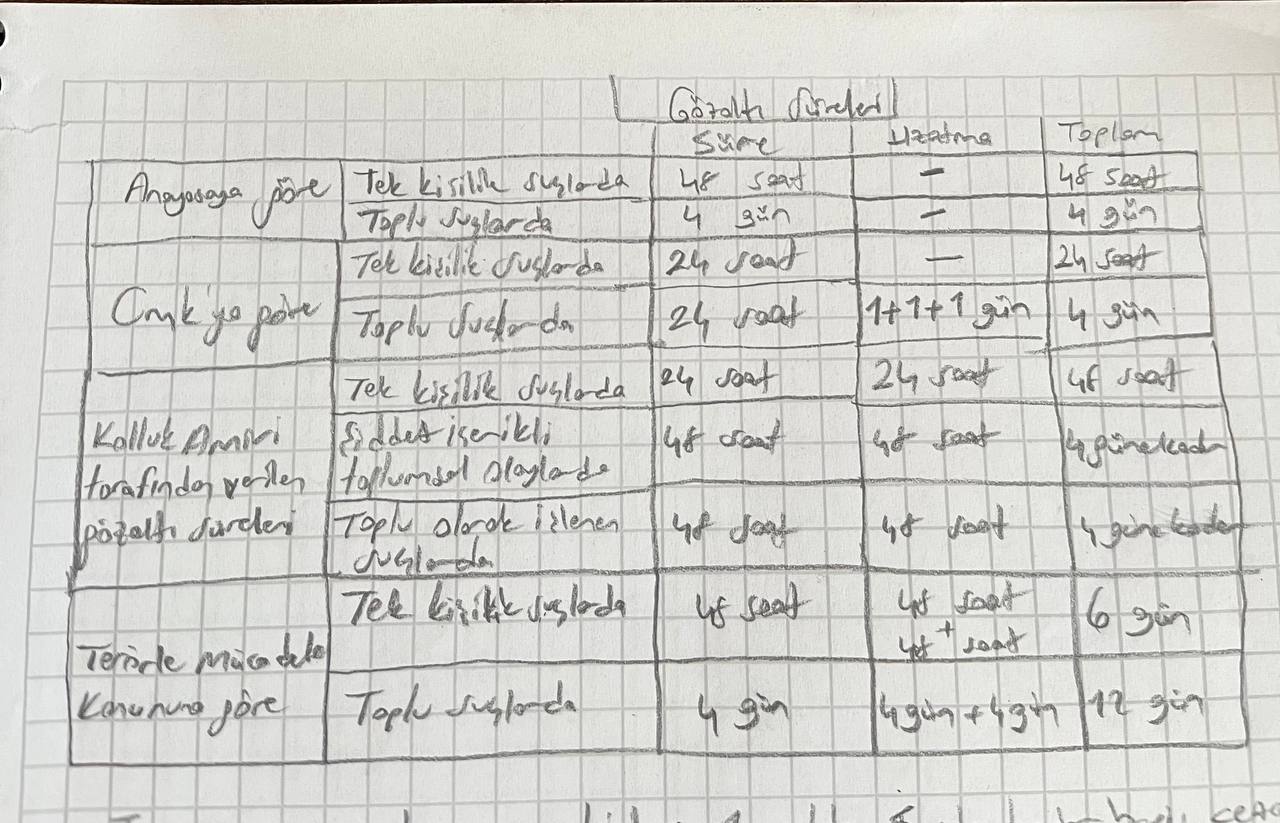 Gözaltı Süreleri
Süre Uzatma Toplam
Anayasaya göre Tek kişilik suçlarda 48 saat - 48 saat
Toplu suçlarda 4 gün - 4 gün
Cmk'ya göre Tek kişilik suçlarda 24 saat - 24 saat
Toplu suçlarda 24 saat 1+1+1 gün 4 gün
Tek kişilik suçlarda 24 saat 24 saat 48 saat
Kolluk Amiri Şiddet içerikli 48 saat 48 saat 4 güne kadar
tarafından verilen toplumsal olaylarda
gözaltı süreleri Toplu olarak işlenen 48 saat 48 saat 4 güne kadar
suçlarda
Tek kişilik suçlarda 48 saat 48 saat 6 gün
+
48 saat
Terörle mücadele
Kanununa göre Toplu suçlarda 4 gün 4 gün + 4 gün 12 gün